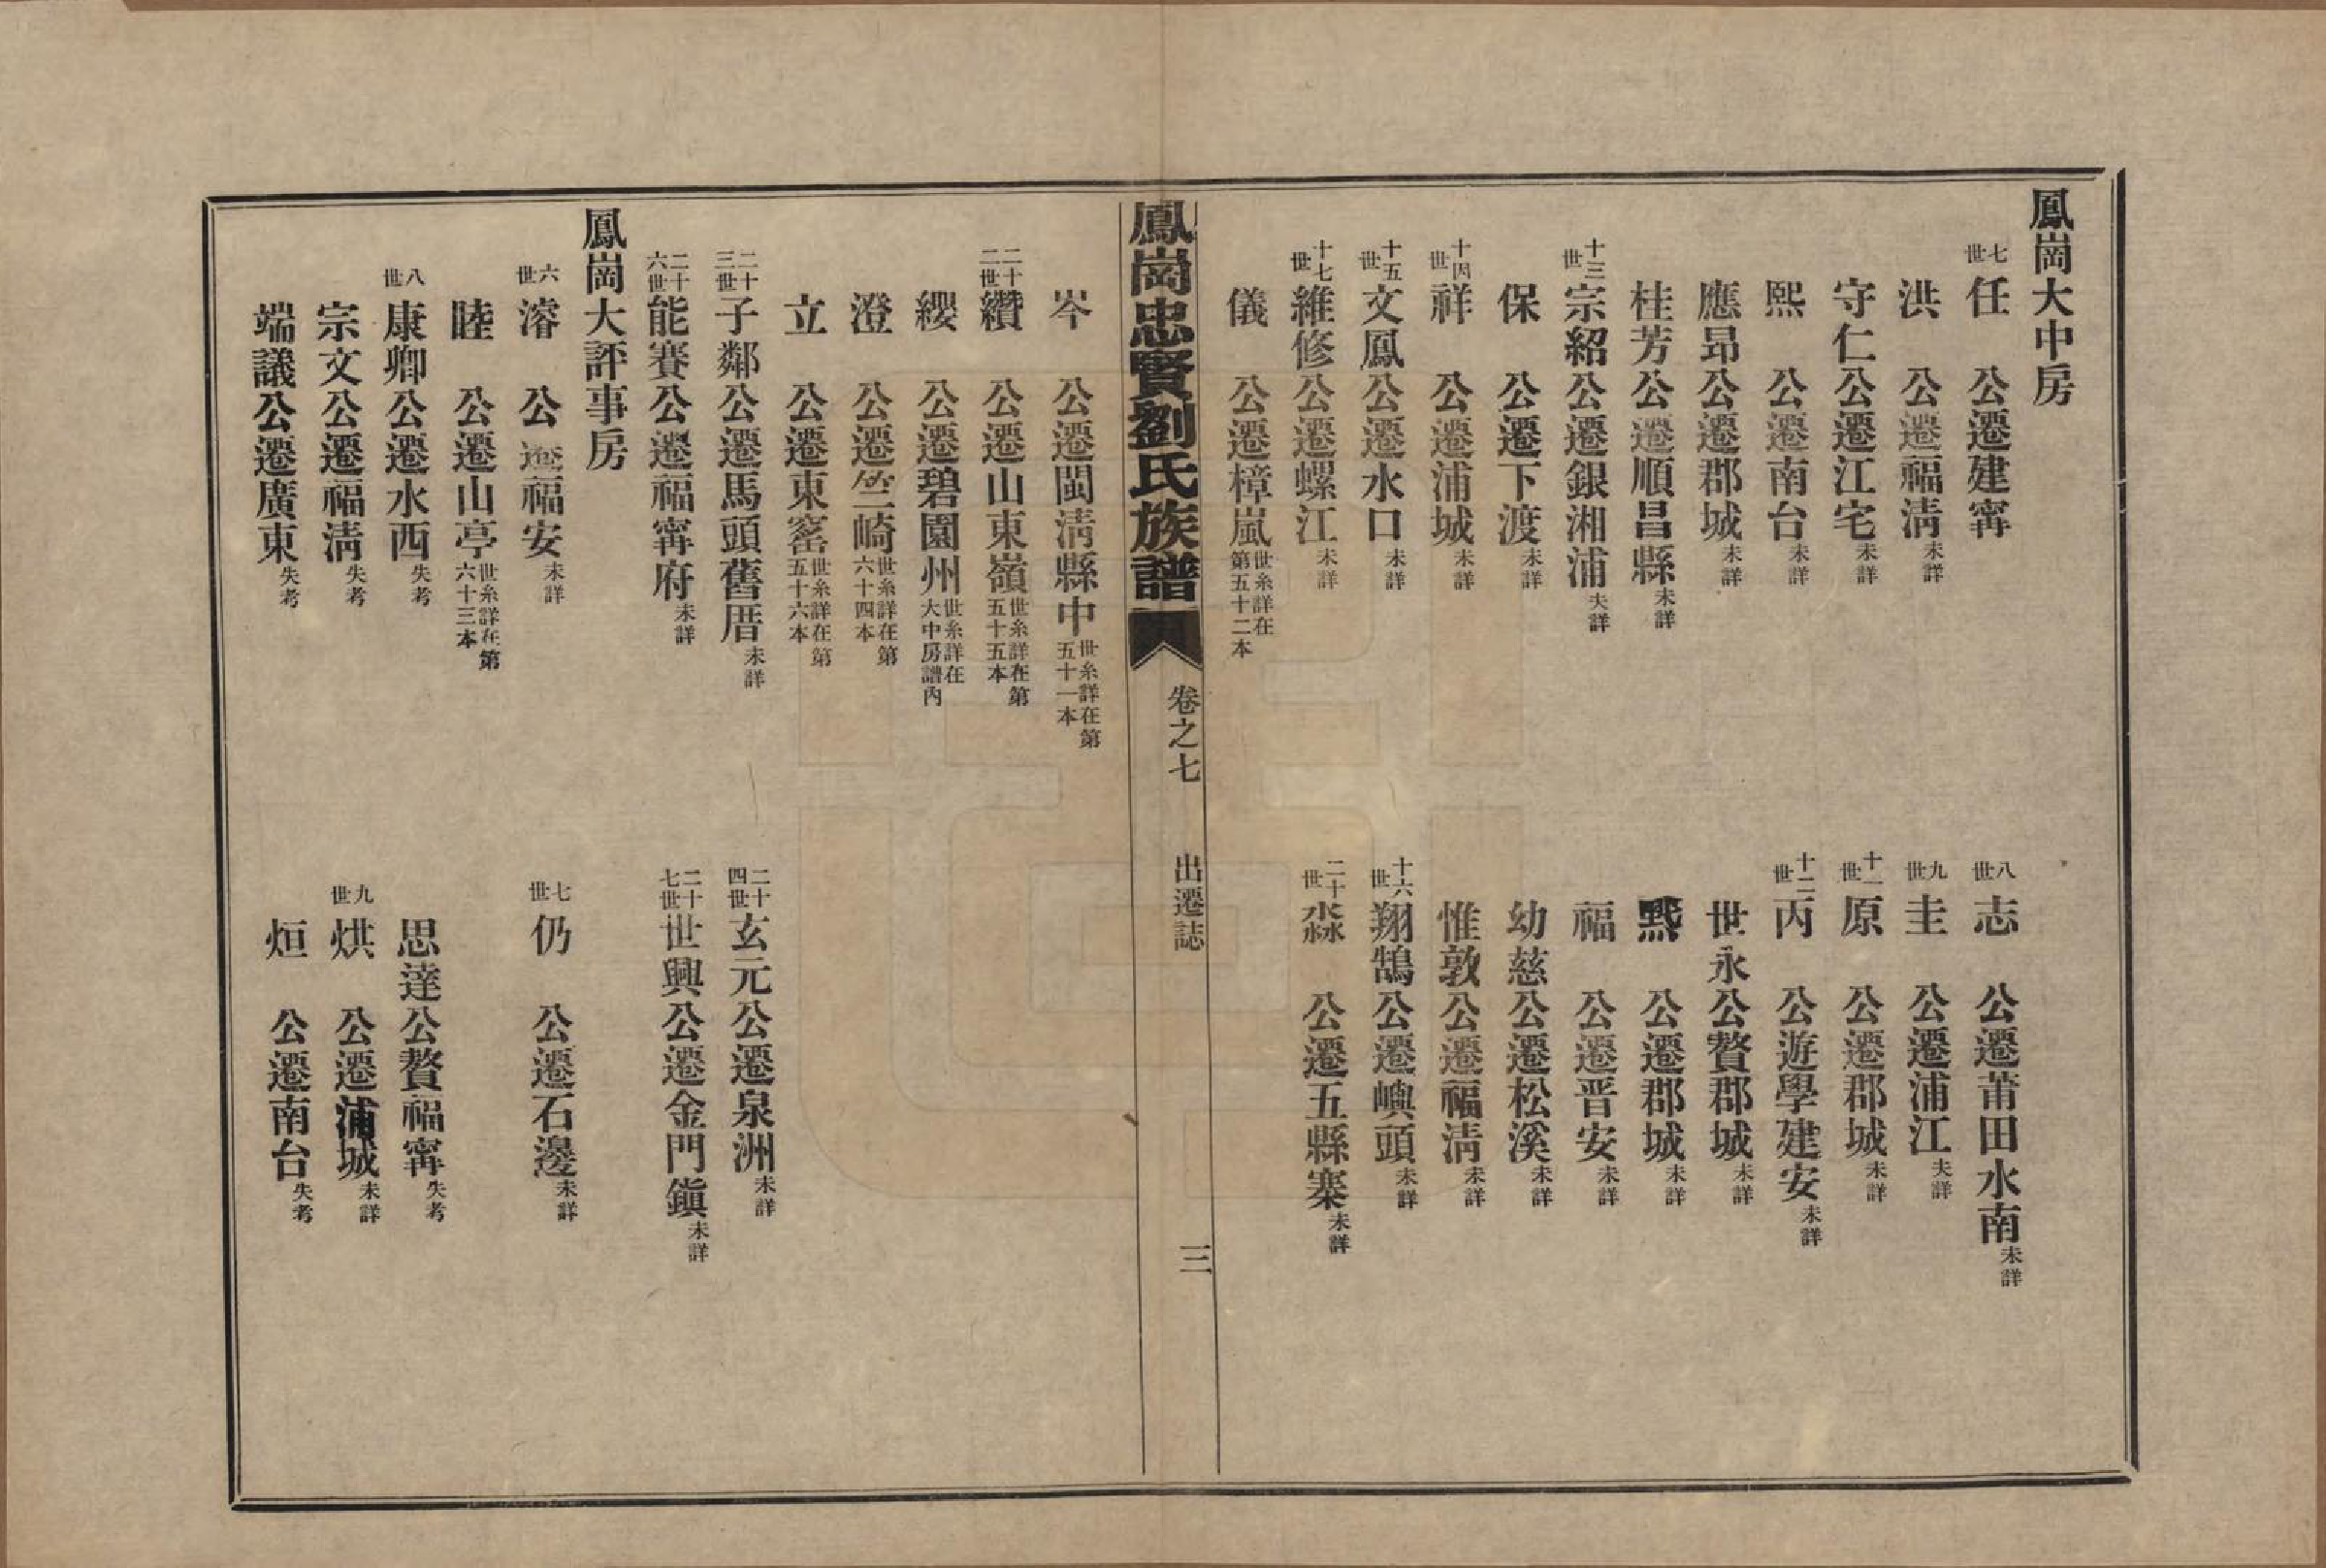 鳳崗大中房
七世任　公遷建甯
八世志　公遷莆田水南未詳
洪　公遷福清未詳
九世圭　公遷浦江失詳
守仁公遷江宅未詳
十一世原　公遷郡城未詳
熙　公遷南台未詳
十二世丙　公遊學建安未詳
應昂公遷郡城未詳
世永公贅郡城未詳
桂芳公遷順昌縣未詳
公遷郡城未詳
十三世宗紹公遷銀湘浦失詳
福　公遷晋安未詳
保　公遷下渡未詳
幼慈公遷松溪未詳
十四世祥　公遷浦城未詳
惟敦公遷福清未詳
十五世文鳳公遷水口未詳
十六世翔鵠公遷嶼頭未詳
十七世維修公遷螺江未詳
二十世淼　公遷五縣寨未詳
儀　公遷樟嵐世系詳在第五十二本
鳳崗忠賢劉氏族譜　卷之七　出遷誌　三
岑　公遷閩清縣中世系詳在第五十一本
二十二世纘　公遷山東嶺世系詳在第五十五本
纓　公遷碧園州世系詳在大中房譜內
澄　公遷竺崎世系詳在第六十四本
立　公遷東窰世系詳在第五十六本
二十三世子鄰公遷馬頭舊厝未詳
二十四世玄元公遷泉洲未詳
二十六世能賽公遷福甯府未詳
二十七世世興公遷金門鎭未詳
鳳崗大評事房
六世濬　公遷福安未詳
七世仍　公遷石邊未詳
睦　公遷山亭世系詳在第六十三本
八世康卿公遷水西失考
思達公贅福甯失考
宗文公遷福清失考
九世烘　公遷浦城未詳
端議公遷廣東失考
烜　公遷南台失考